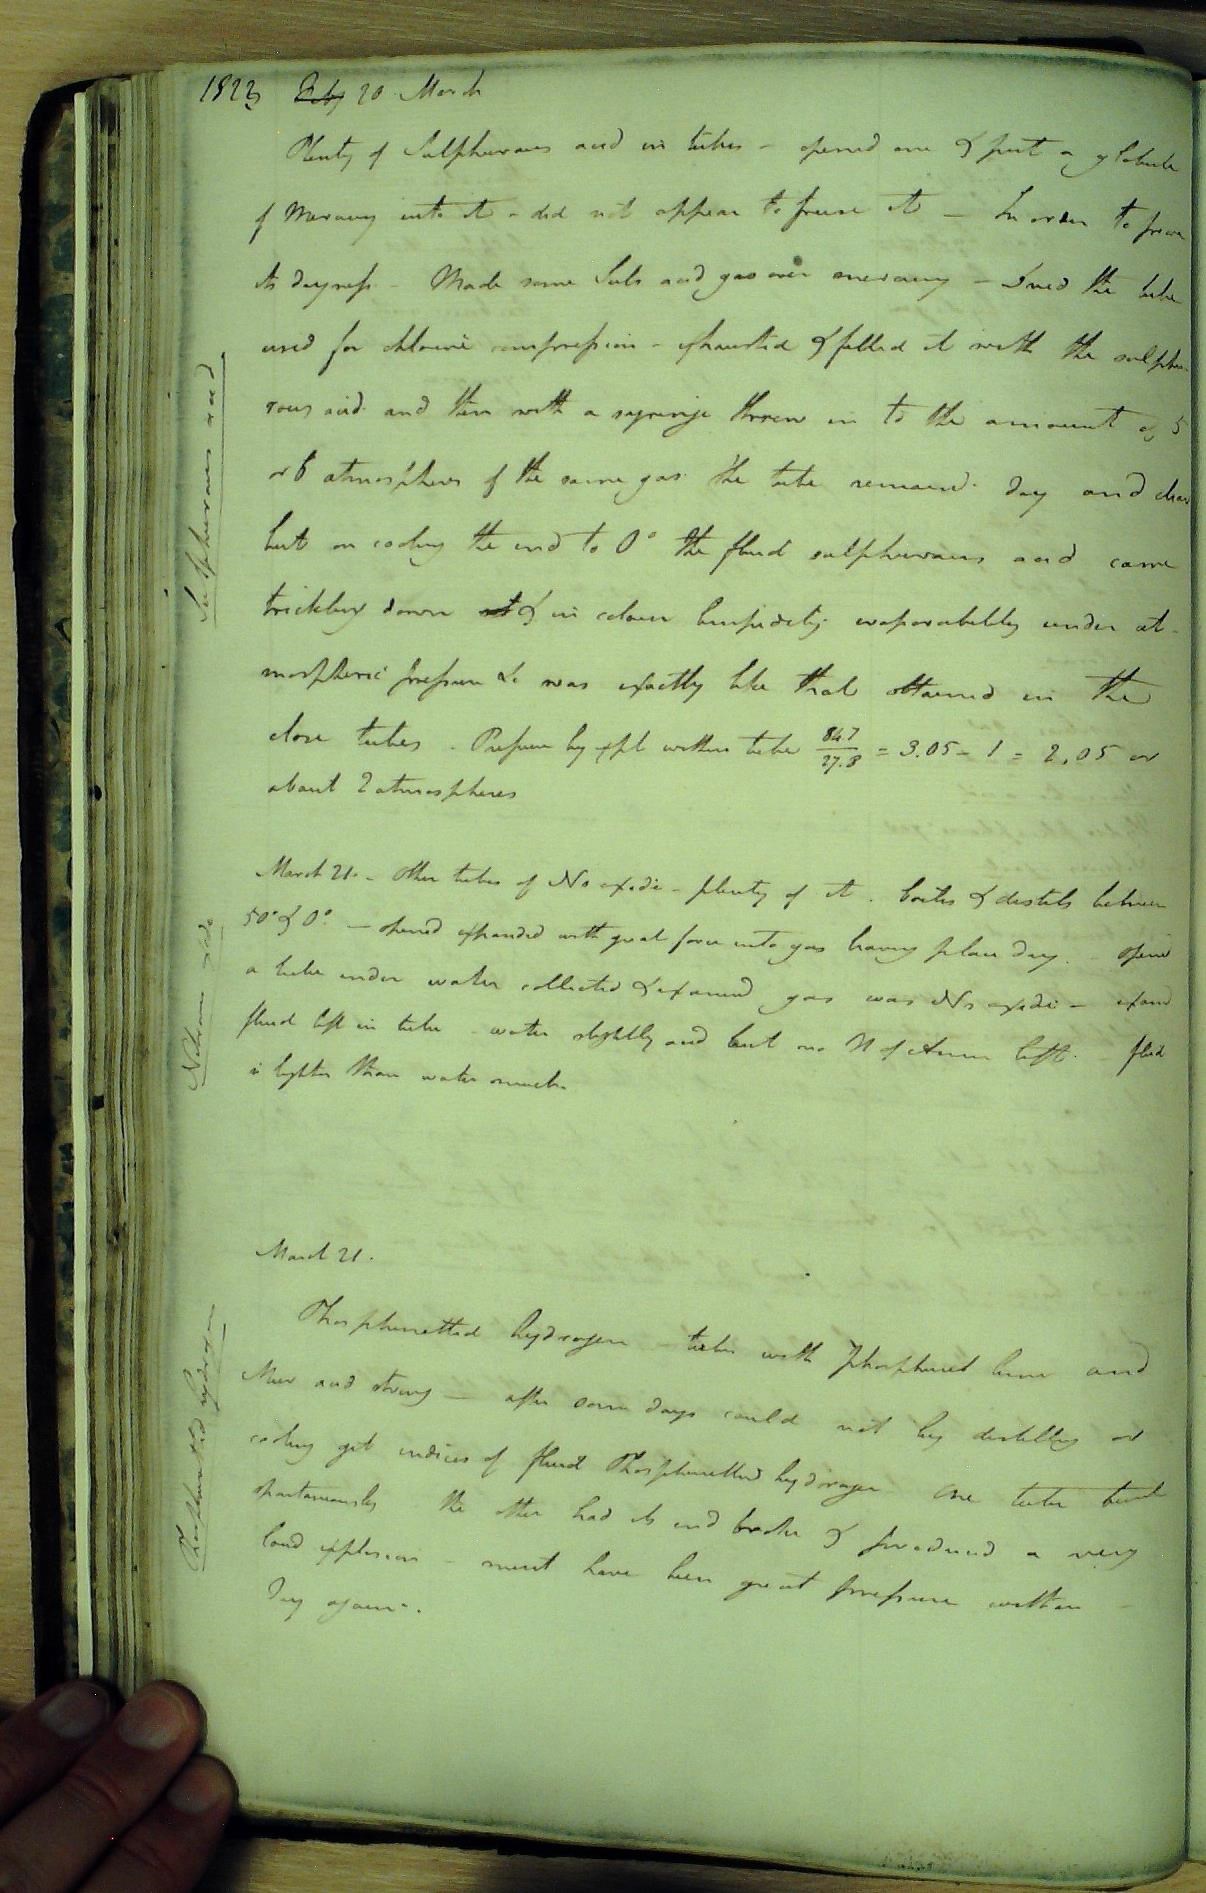 1823 Feby 20 March
Plenty of Sulphurous acid in tubes - opened one & put a globule
of Mercury into it - did not appear to freeze it - In order to prove
its dryness - Made some Sul acid gas over mercury - Dried the tube
used for chlorine compression - exhausted & filled it with the sulphu-
rous acid and then with a syringe threw in to the amount of 5
or 6 atmospheres of the same gas the tube remained dry and clear
but on cooling the end to 0° the fluid sulphurous acid came
trickling down & in colour limpidity evaporability under at-
mospheric pressure &c was exactly like that obtained in the
close tubes. Pressure by expt within tube 84.7/27.8 = 3.05 - 1 = 2.05 or
about 2 atmospheres
Sulphurous acid
March 21. - Other tubes of Ns oxide - plenty of it. boils & distils between
50° & 0°. - opened expanded with great force into gas leaving place dry. - opened
a tube under water collected & examined gas was Ns oxide -
fluid left in tube - water slightly acid but no N of Amm left. - fluid
is lighter than water much.
Nitrous oxide
March 21.
Phosphuretted hydrogen - tubes with Phosphuret lime and
Mur acid strong - after some days could not by distilling or
cooling get indices of fluid Phosphuretted hydrogen One tube burst
spontaneously the other had its end broke & produced a very
loud explosion - must have been great pressure within -
Try again.
Phosphuretted hydrogen